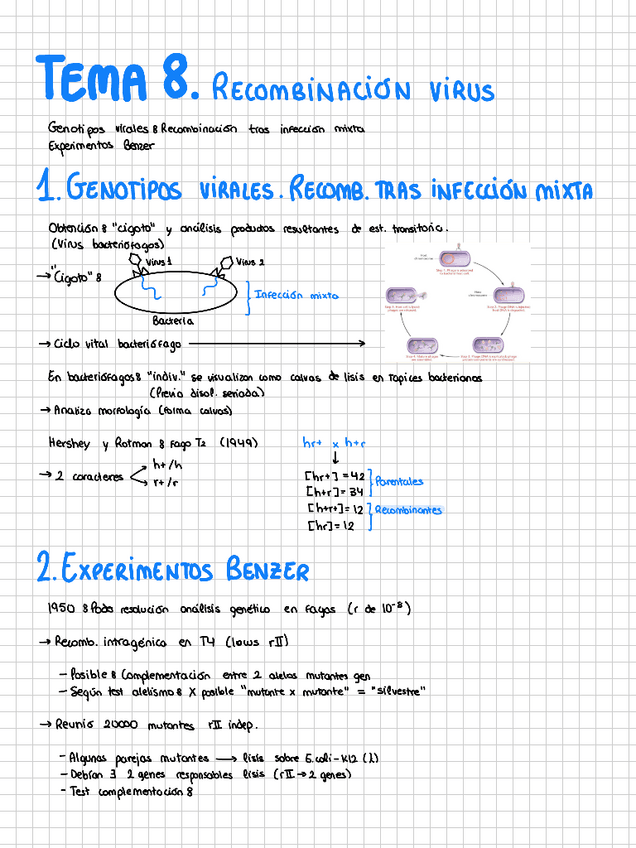 TEMA 8. RECOMBINACIÓN VIRUS
Genotipos virales 8 Recombinación tras infección mixta
Experimentos Benzer
1. GENOTIPOS VIRALES. RECOMB. TRAS INFECCIÓN MIXTA
Obtención 8 "cigoto" y análisis productos resultantes de est. transitorio.
(Virus bacteriófagos)
→ "Cigoto" 8
Virus 1
Virus 2
Infección mixta
Bacteria
→ Ciclo vital bacteriófago
En bacteriófagos 8 "indiv." se visualizan como calvas de lisis en tapices bacterianos
(Previa disol. seriada)
→ Analiza morfología (forma calvas)
Hershey y Rotman 8 Fago T2 (1949)
→ 2 caracteres
h+/h
r+/r
hr+ x h+r
[hr+] = 42
[h+r] = 34
Parentales
[h+r+] = 12
[hr] = 12
Recombinantes
2. EXPERIMENTOS BENZER
1950 8 Poder resolución análisis genético en fagos (r de 10⁻⁸)
→ Recomb. intragénica en T4 (locus rII)
- Posible 8 Complementación entre 2 alelos mutantes gen
- Según test alelismo 8 X posible "mutante x mutante" = "silvestre"
→ Reunió 20000 mutantes rII indep.
- Algunas parejas mutantes → lisis sobre E.coli-K12 (λ)
- Debían ∃ 2 genes responsables lisis (rII → 2 genes)
- Test complementación 8